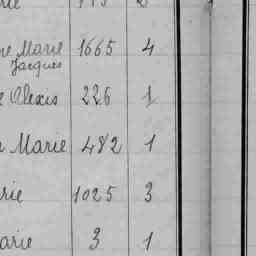 Marie 1665 4
Jacques
Alexis 226 1
Marie 482 1
rie 1025 3
arie 3 1